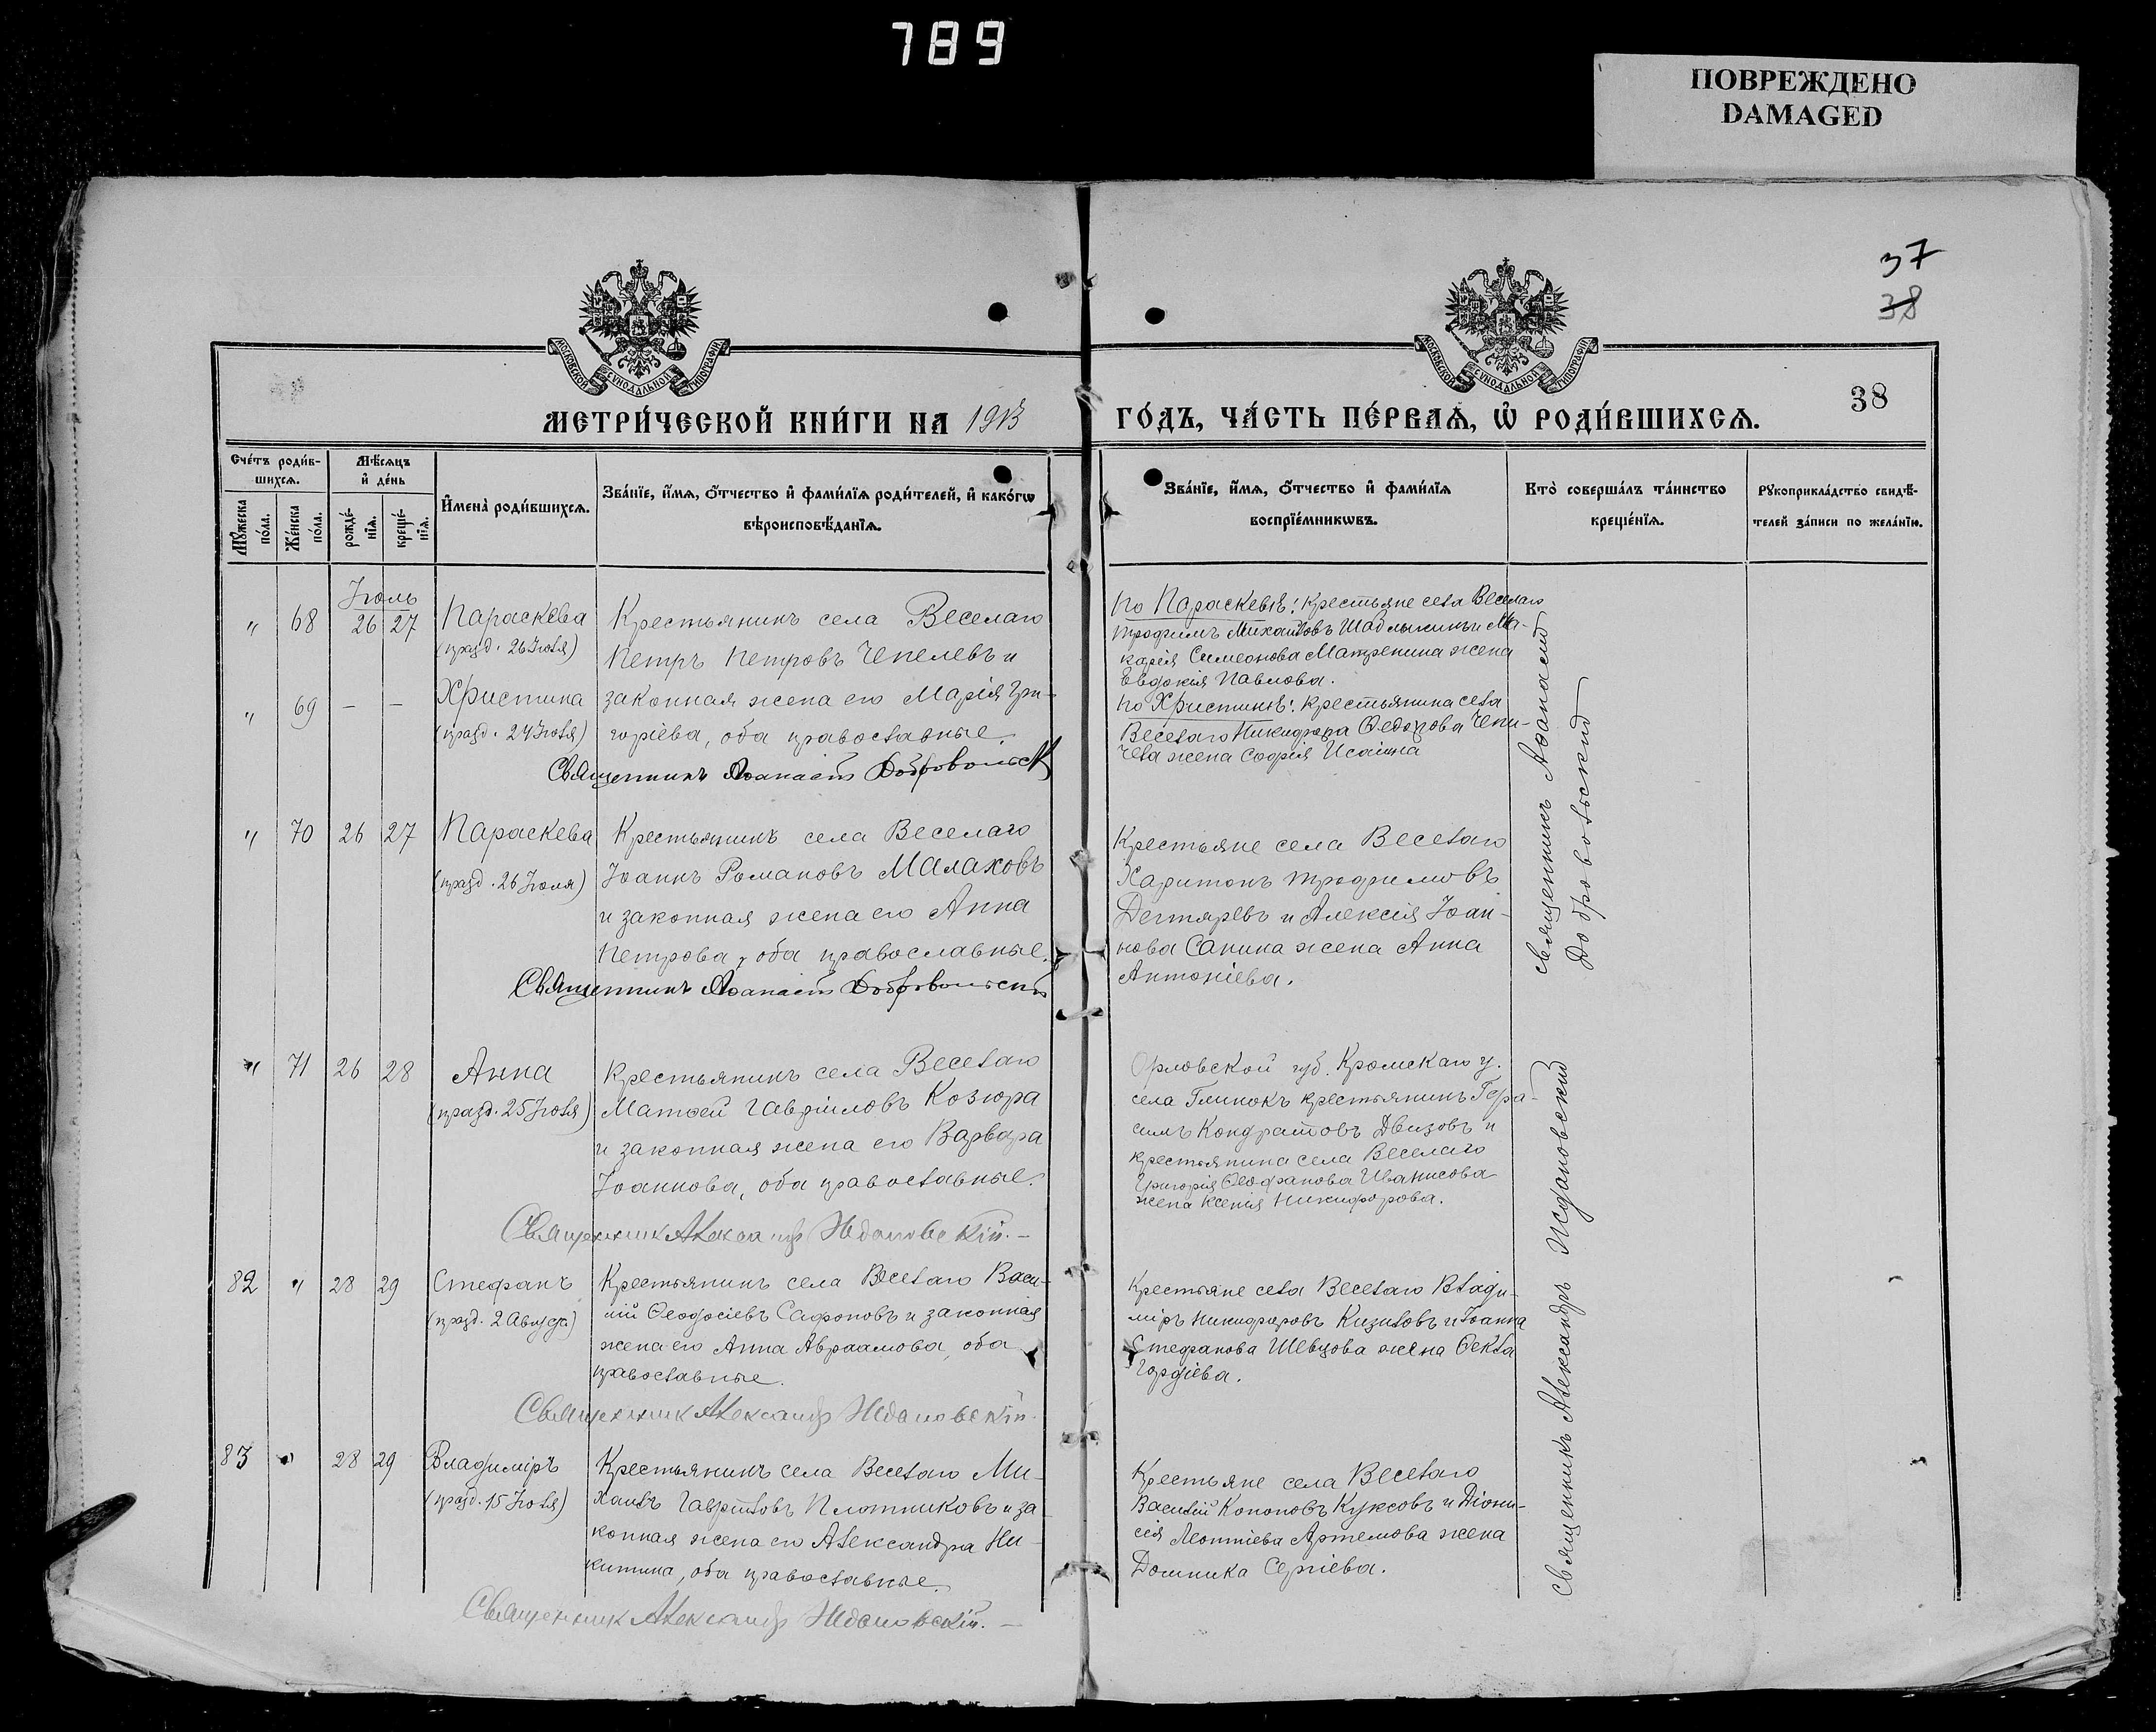 789
ПОВРЕЖДЕНО
DAMAGED
37
38
МОСКОВСКОЙ СѴНОДАЛЬНОЙ ТИПОГРАФІИ
МОСКОВСКОЙ СѴНОДАЛЬНОЙ ТИПОГРАФІИ
38
МЕТРИ́ЧЕСКОЙ КНИ́ГИ НА 1913
ГО́ДЪ, ЧА́СТЬ ПЕ́РВАѦ, Ѡ҆ РОДИ́ВШИХСѦ.
Сче́тъ роди́в-
шихсѧ.
Мѹ́жеска по́ла.
Же́нска по́ла.
Мѣ́сѧцъ
и҆ де́нь
рожде́-
нїѧ.
креще́-
нїѧ.
И҆мена̀ роди́вшихсѧ.
Зва́нїе, и҆́мѧ, ѻ҆́тчество и҆ фами́лїѧ роди́телей, и҆ како́гѡ
вѣроисповѣ́данїѧ.
Зва́нїе, и҆́мѧ, ѻ҆́тчество и҆ фами́лїѧ
воспрїе́мникѡвъ.
Кто̀ соверша́лъ та́инство
креще́нїѧ.
Рѹкоприкла́дство свидѣ́-
телей за́писи по жела́нїю.
Іюль
" 68 26 27 Параскева
(празд. 26 Іюля)
Крестьянинъ села Веселаго
Петръ Петровъ Чепелевъ и
законная жена его Марія Гри-
горіева, оба православные.
" 69 – – Христина
(празд. 24 Іюля)
Священникъ Аѳанасій Добровольск
По Параскевѣ: крестьяне села Веселаго
Трофимъ Михаиловъ и Ма-
карія Симеонова Матренина жена
Евдокія Павлова.
По Христинѣ: крестьянина села
Веселаго Никифора Ѳедорова Чепи-
чева жена Софія Исаіина
" 70 26 27 Параскева
(празд. 26 Іюля)
Крестьянинъ села Веселаго
Іоаннъ Романовъ Малаховъ
и законная жена его Анна
Петрова, оба православные.
Священникъ Аѳанасій Добровольскій
Крестьяне села Веселаго
Харитонъ Трофимовъ
Дегтяревъ и Алексія Іоан-
нова Санина жена Анна
Антоніева.
священникъ Аѳанасій
Добровольскій
" 71 26 28 Анна
(празд. 25 Іюля)
Крестьянинъ села Веселаго
Матѳей Гавріиловъ Козюра
и законная жена его Варвара
Іоаннова, оба православные.
Священник Александр Ждановскій. –
Орловской губ. Кромскаго у.
села Глинокъ крестьянинъ Гера-
симъ Кондратовъ Двизовъ и
крестьянина села Веселаго
Григорія Ѳеофанова Иванисова
жена Ксенія Никифорова.
82 " 28 29 Стефанъ
(празд. 2 Август.)
Крестьянинъ села Веселаго Васи-
лій Ѳеодосіевъ Сафоновъ и законная
жена его Анна Авраамова, оба
православные.
Священник Александр Ждановскій
Крестьяне села Веселаго Влади-
міръ Никифоровъ Кизиловъ и Іоанна
Стефанова Шевцова жена Ѳекла
Гордіева.
83 " 28 29 Владиміръ
(празд. 15 Іюля)
Крестьянинъ села Веселаго Ми-
хаилъ Гавріиловъ Плотниковъ и за-
конная жена его Александра Ни-
китина, оба православные.
Священник Александр Ждановскій. –
Крестьяне села Веселаго
Василій Кононовъ Куксовъ и Діони-
сія Леонтіева Артемова жена
Домника Сергіева.
Священникъ Александръ Ждановскій